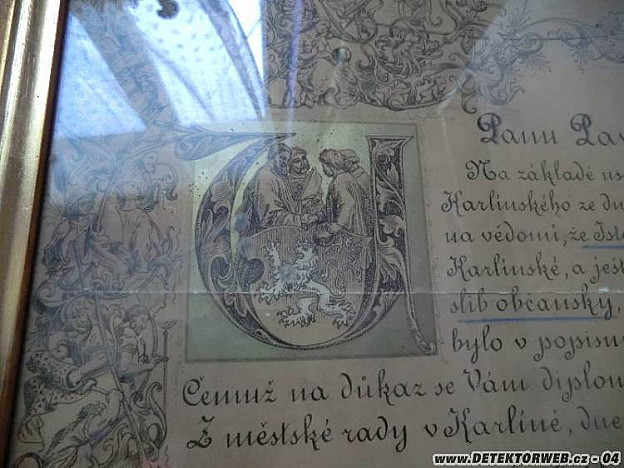 Panu Pav
Na základě us
Karlínského ze du
na vědomí, že Jste
Karlínské, a ješt
slib občanský,
bylo v popisu
Čemuž na důkaz se Vám diplom
Z městské rady v Karlíně, dne
www.DETEKTORWEB.cz - 04